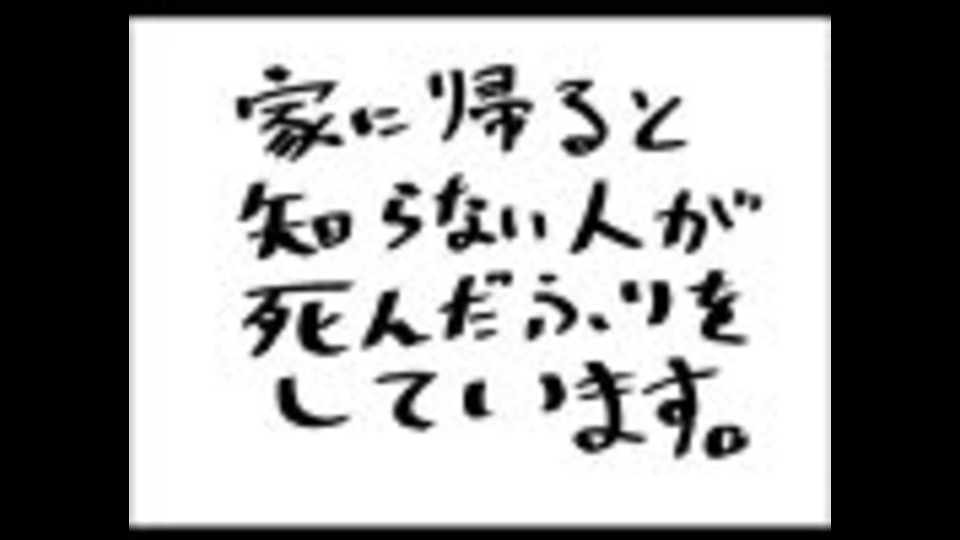 家に帰ると
知らない人が
死んだふりを
しています。